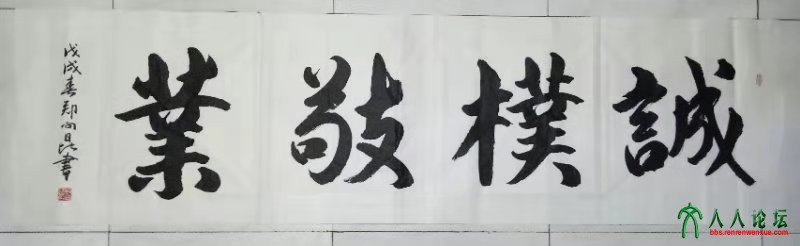 誠樸敬業
戊戌春郑向昆書
人人论坛
bbs.renrenwenxue.com